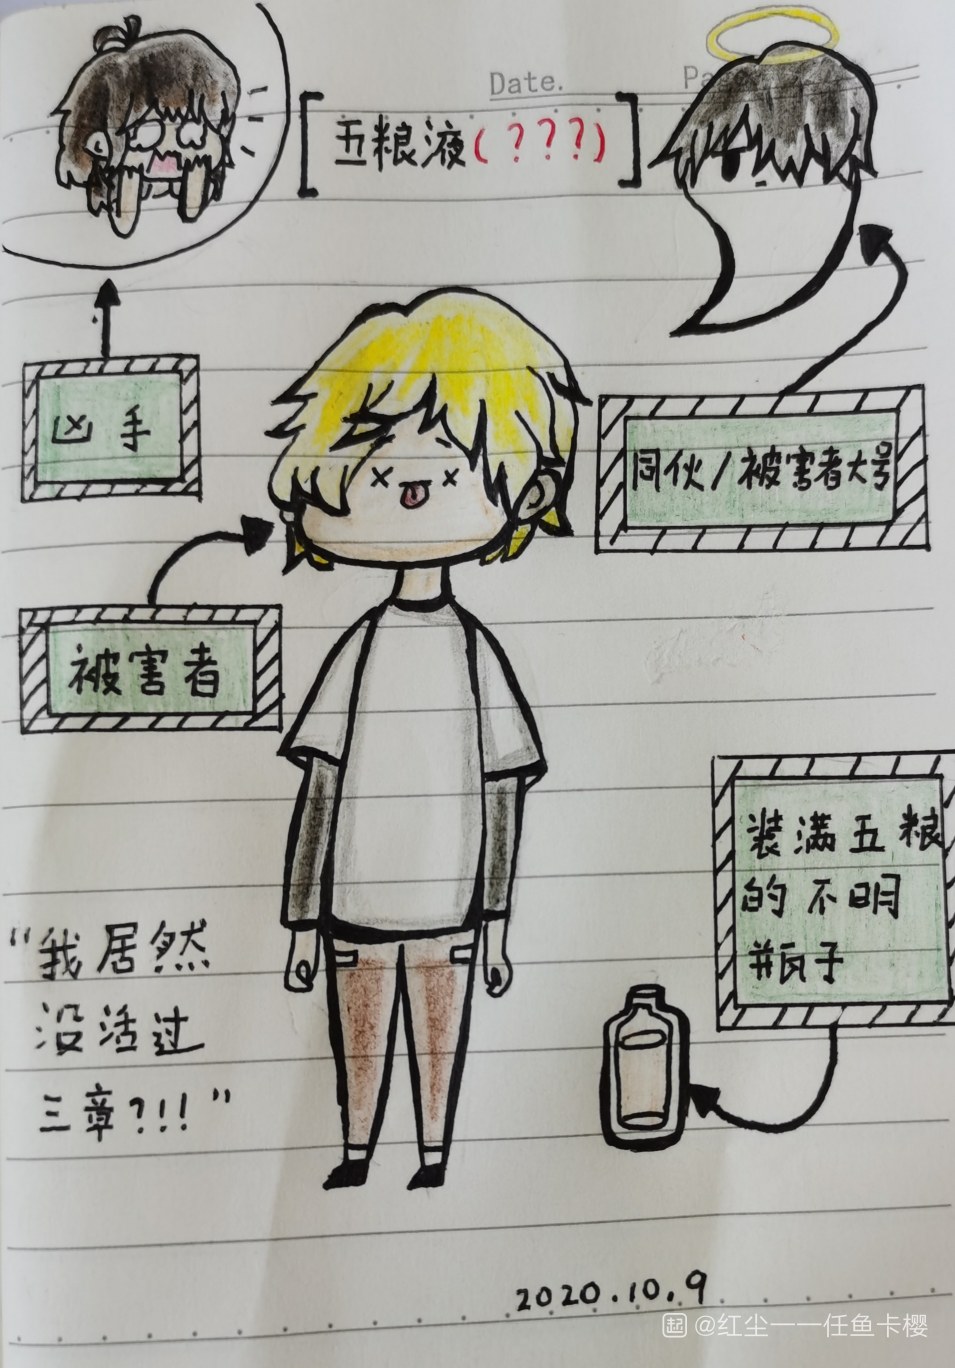 Date.
Pa
五粮液(???)
凶手
同伙/被害者大号
被害者
装满五粮
的不明
瓶子
"我居然
没活过
三章?!!"
2020.10.9
@红尘一一任鱼卡樱